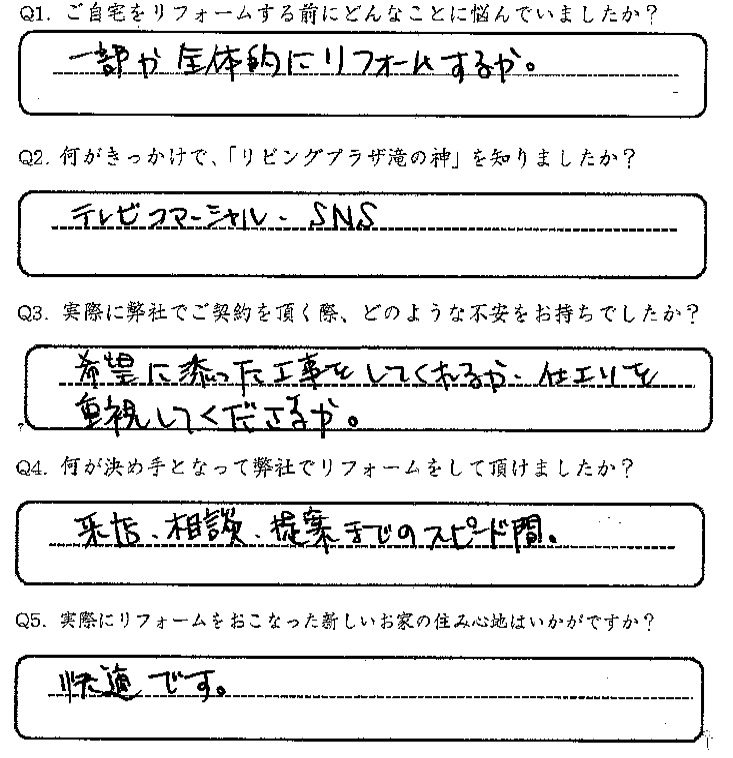 Q1. ご自宅をリフォームする前にどんなことに悩んでいましたか？
一部か全体的にリフォームするか。
Q2. 何がきっかけで、「リビングプラザ滝の神」を知りましたか？
テレビコマーシャル・SNS
Q3. 実際に弊社でご契約を頂く際、どのような不安をお持ちでしたか？
希望に添った工事をしてくれるか・仕上りを
重視してくださるか。
Q4. 何が決め手となって弊社でリフォームをして頂けましたか？
来店、相談、提案までのスピード間。
Q5. 実際にリフォームをおこなった新しいお家の住み心地はいかがですか？
快適です。